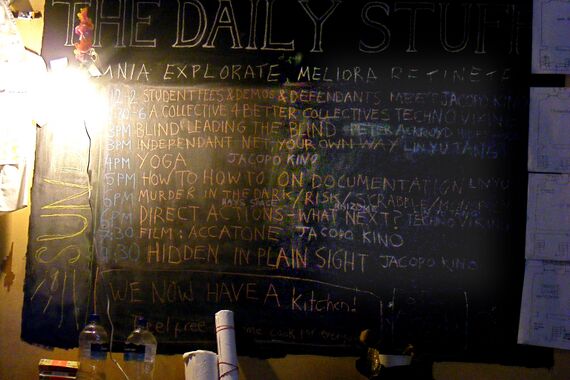 THE DAILY STUFF
OMNIA EXPLORATE, MELIORA RETINETE
12-2 STUDENT FEES & DEMOS & DEFENDANTS MEET JACOPO KINO
A COLLECTIVE 4 BETTER COLLECTIVES TECHNO VIKING
3PM BLIND LEADING THE BLIND PETER ACKROYD
3PM INDEPENDANT NET, YOUR OWN WAY LIN YUTANG
4PM YOGA JACOPO KINO
5PM HOW TO HOW TO ON DOCUMENTATION LIN YU
6PM MURDER IN THE DARK/RISK/SCRABBLE/
6PM DIRECT ACTIONS - WHAT NEXT? TECHNO VIKING
:30 FILM: ACCATONE JACOPO KINO
:30 HIDDEN IN PLAIN SIGHT JACOPO KINO
SUN
WE NOW HAVE A kitchen!
Feel free come cook for